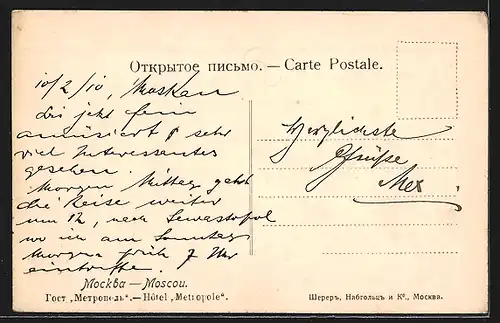 Открытое письмо. — Carte Postale.
10/2/10, Moskau.
Bis jetzt fein
amüsiert & sehr
viel Interessantes
gesehen.
Morgen Mittag geht
die Reise weiter
um 12, nach Sewastopol
wo ich am Sonntag
Morgen früh 7 Uhr
eintreffe.
Herzlichste
Grüße
Max
Москва — Moscou.
Гост „Метрополь“. — Hôtel „Métropole“.
Шереръ, Набгольцъ и К⁰., Москва.